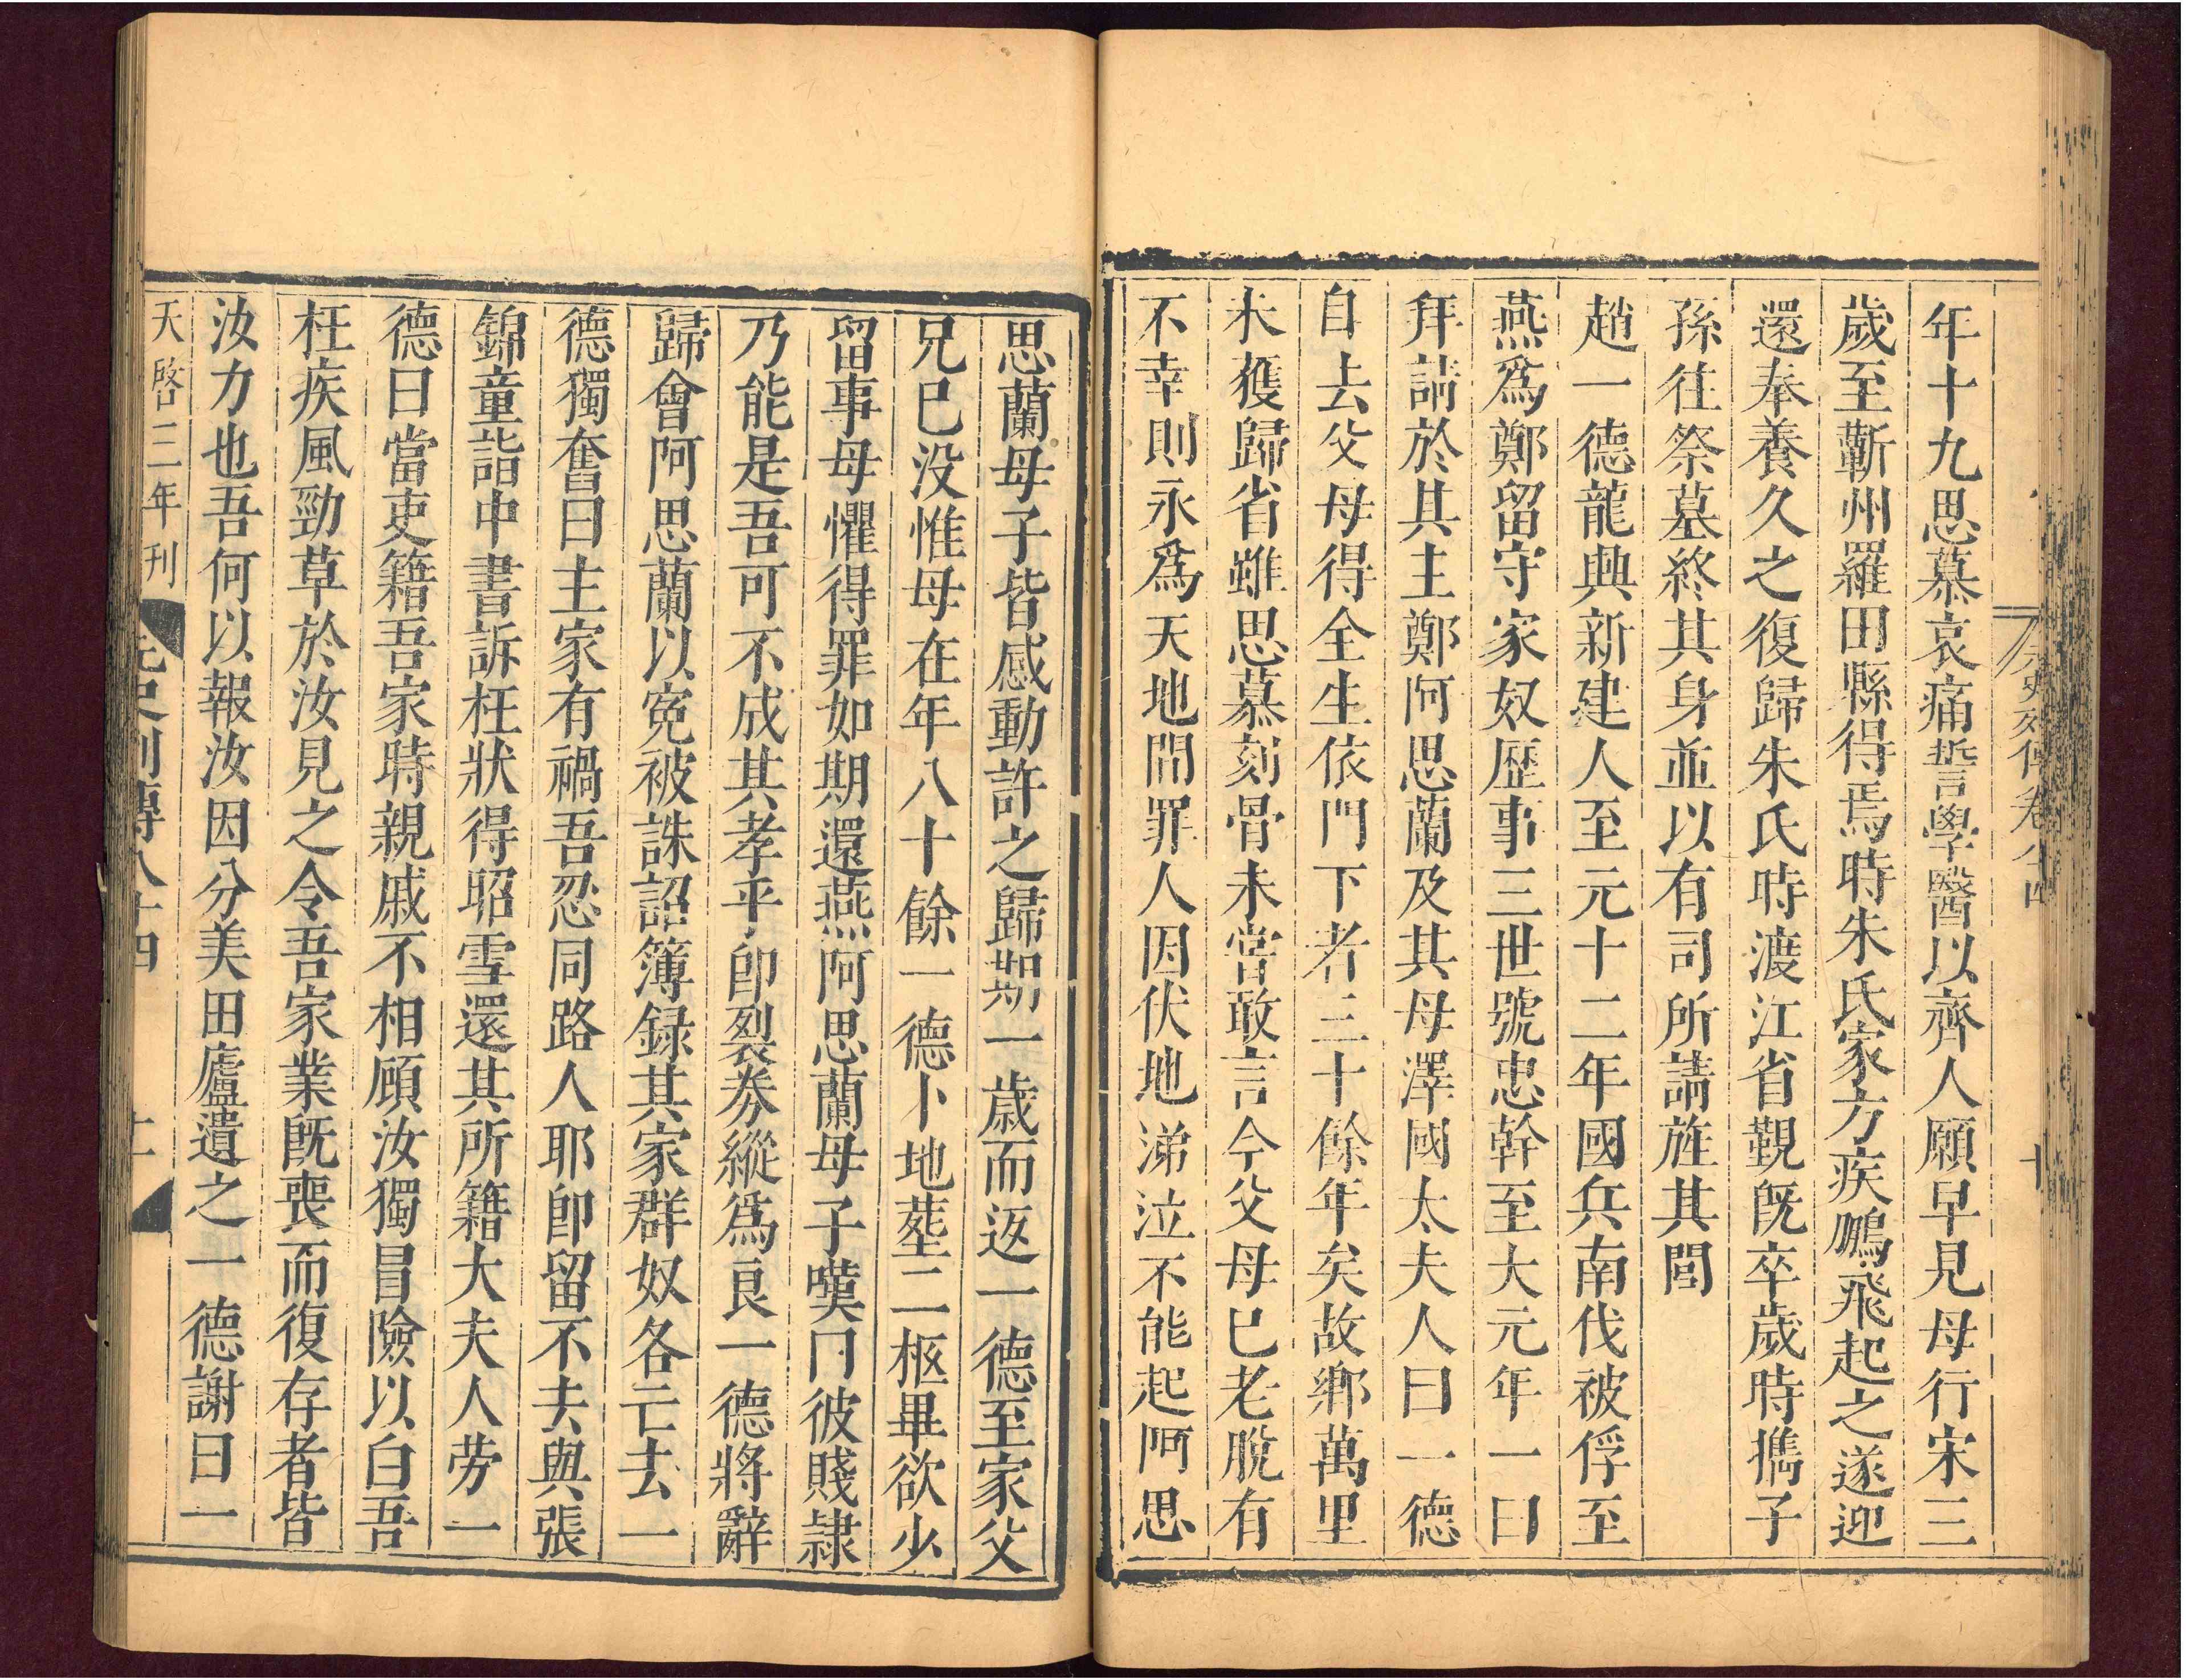 年十九思慕哀痛誓學醫以齊人願早見母行宋三
歲至蘄州羅田縣得焉時朱氏家方疾鵬飛起之遂迎
還奉養久之復歸朱氏時渡江省覲旣卒歲時攜子
孫往祭墓終其身並以有司所請旌其閭
趙一德龍興新建人至元十二年國兵南伐被俘至
燕爲鄭留守家奴歷事三世號忠幹至大元年一曰
拜請於其主鄭阿思蘭及其母澤國太夫人曰一德
自去父母得全生依門下者三十餘年矣故鄉萬里
未獲歸省雖思慕刻骨未嘗敢言今父母已老脫有
不幸則永爲天地間罪人因伏地涕泣不能起阿思
思蘭母子皆感動許之歸期一歲而返一德至家父
兄已没惟母在年八十餘一德卜地塟二柩畢欲少
留事母懼得罪如期還燕阿思蘭母子嘆曰彼賤隷
乃能是吾可不成其孝乎卽裂券縱爲良一德將辭
歸會阿思蘭以寃被誅詔簿録其家群奴各亡去一
德獨奮曰主家有禍吾忍同路人耶卽留不去與張
錦童詣中書訴枉狀得昭雪還其所籍大夫人劳一
德曰當吏籍吾家時親戚不相顧汝獨冒險以白吾
枉疾風勁草於汝見之令吾家業旣喪而復存者皆
汝力也吾何以報汝因分美田廬遺之一德謝曰一
天啓三年刊
元史列傳八十四